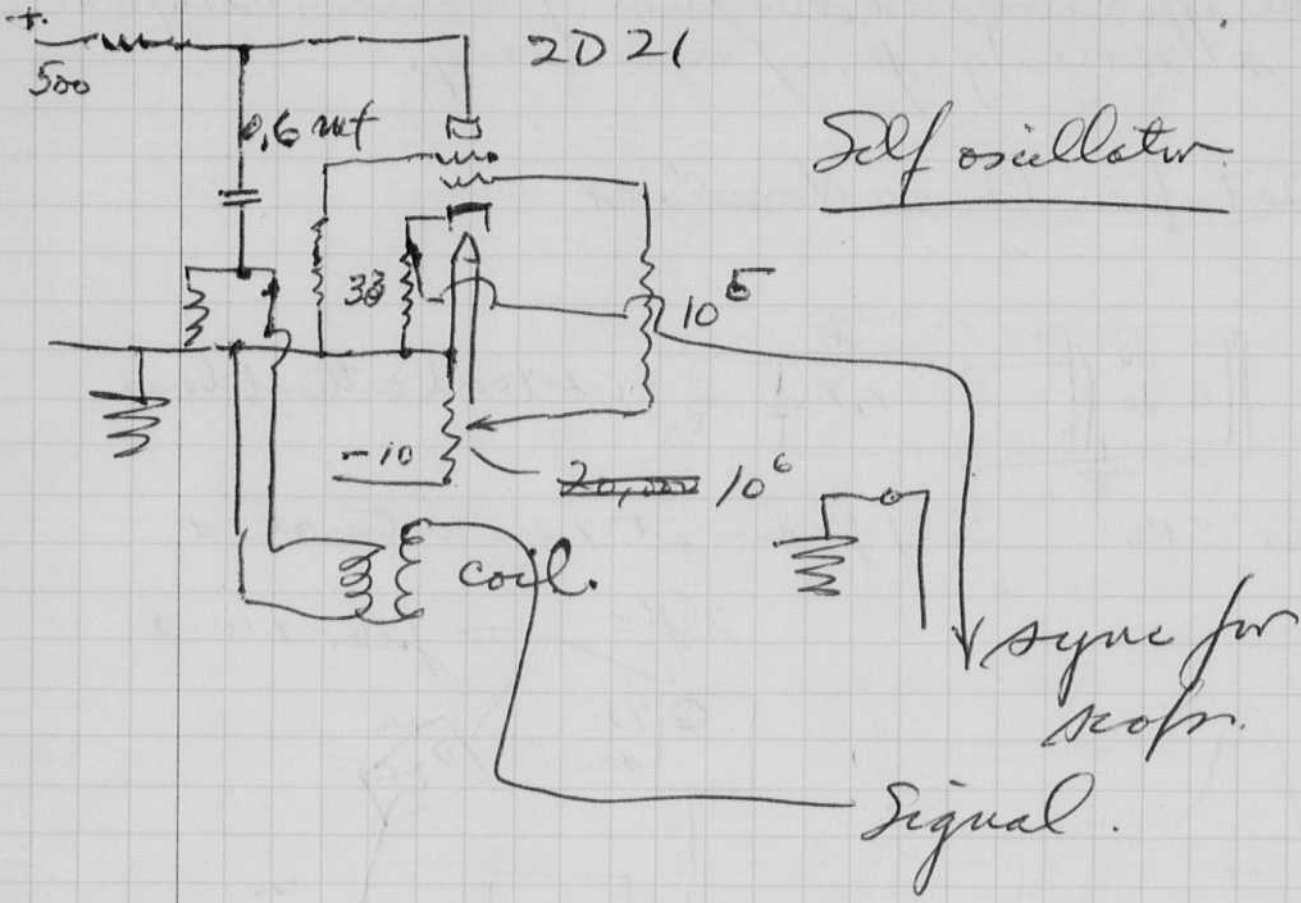 +
500
2D21
0,6 mf
Self oscillator
10^5
-10
20,000 10^6
coil.
sync for
scope.
Signal.